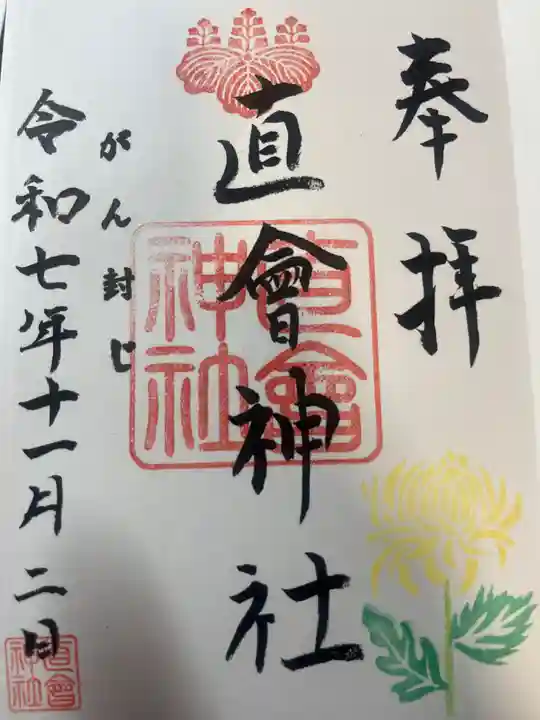 奉拝
直會神社
直會神社
がん封じ
令和七年十一月二日
直會神社